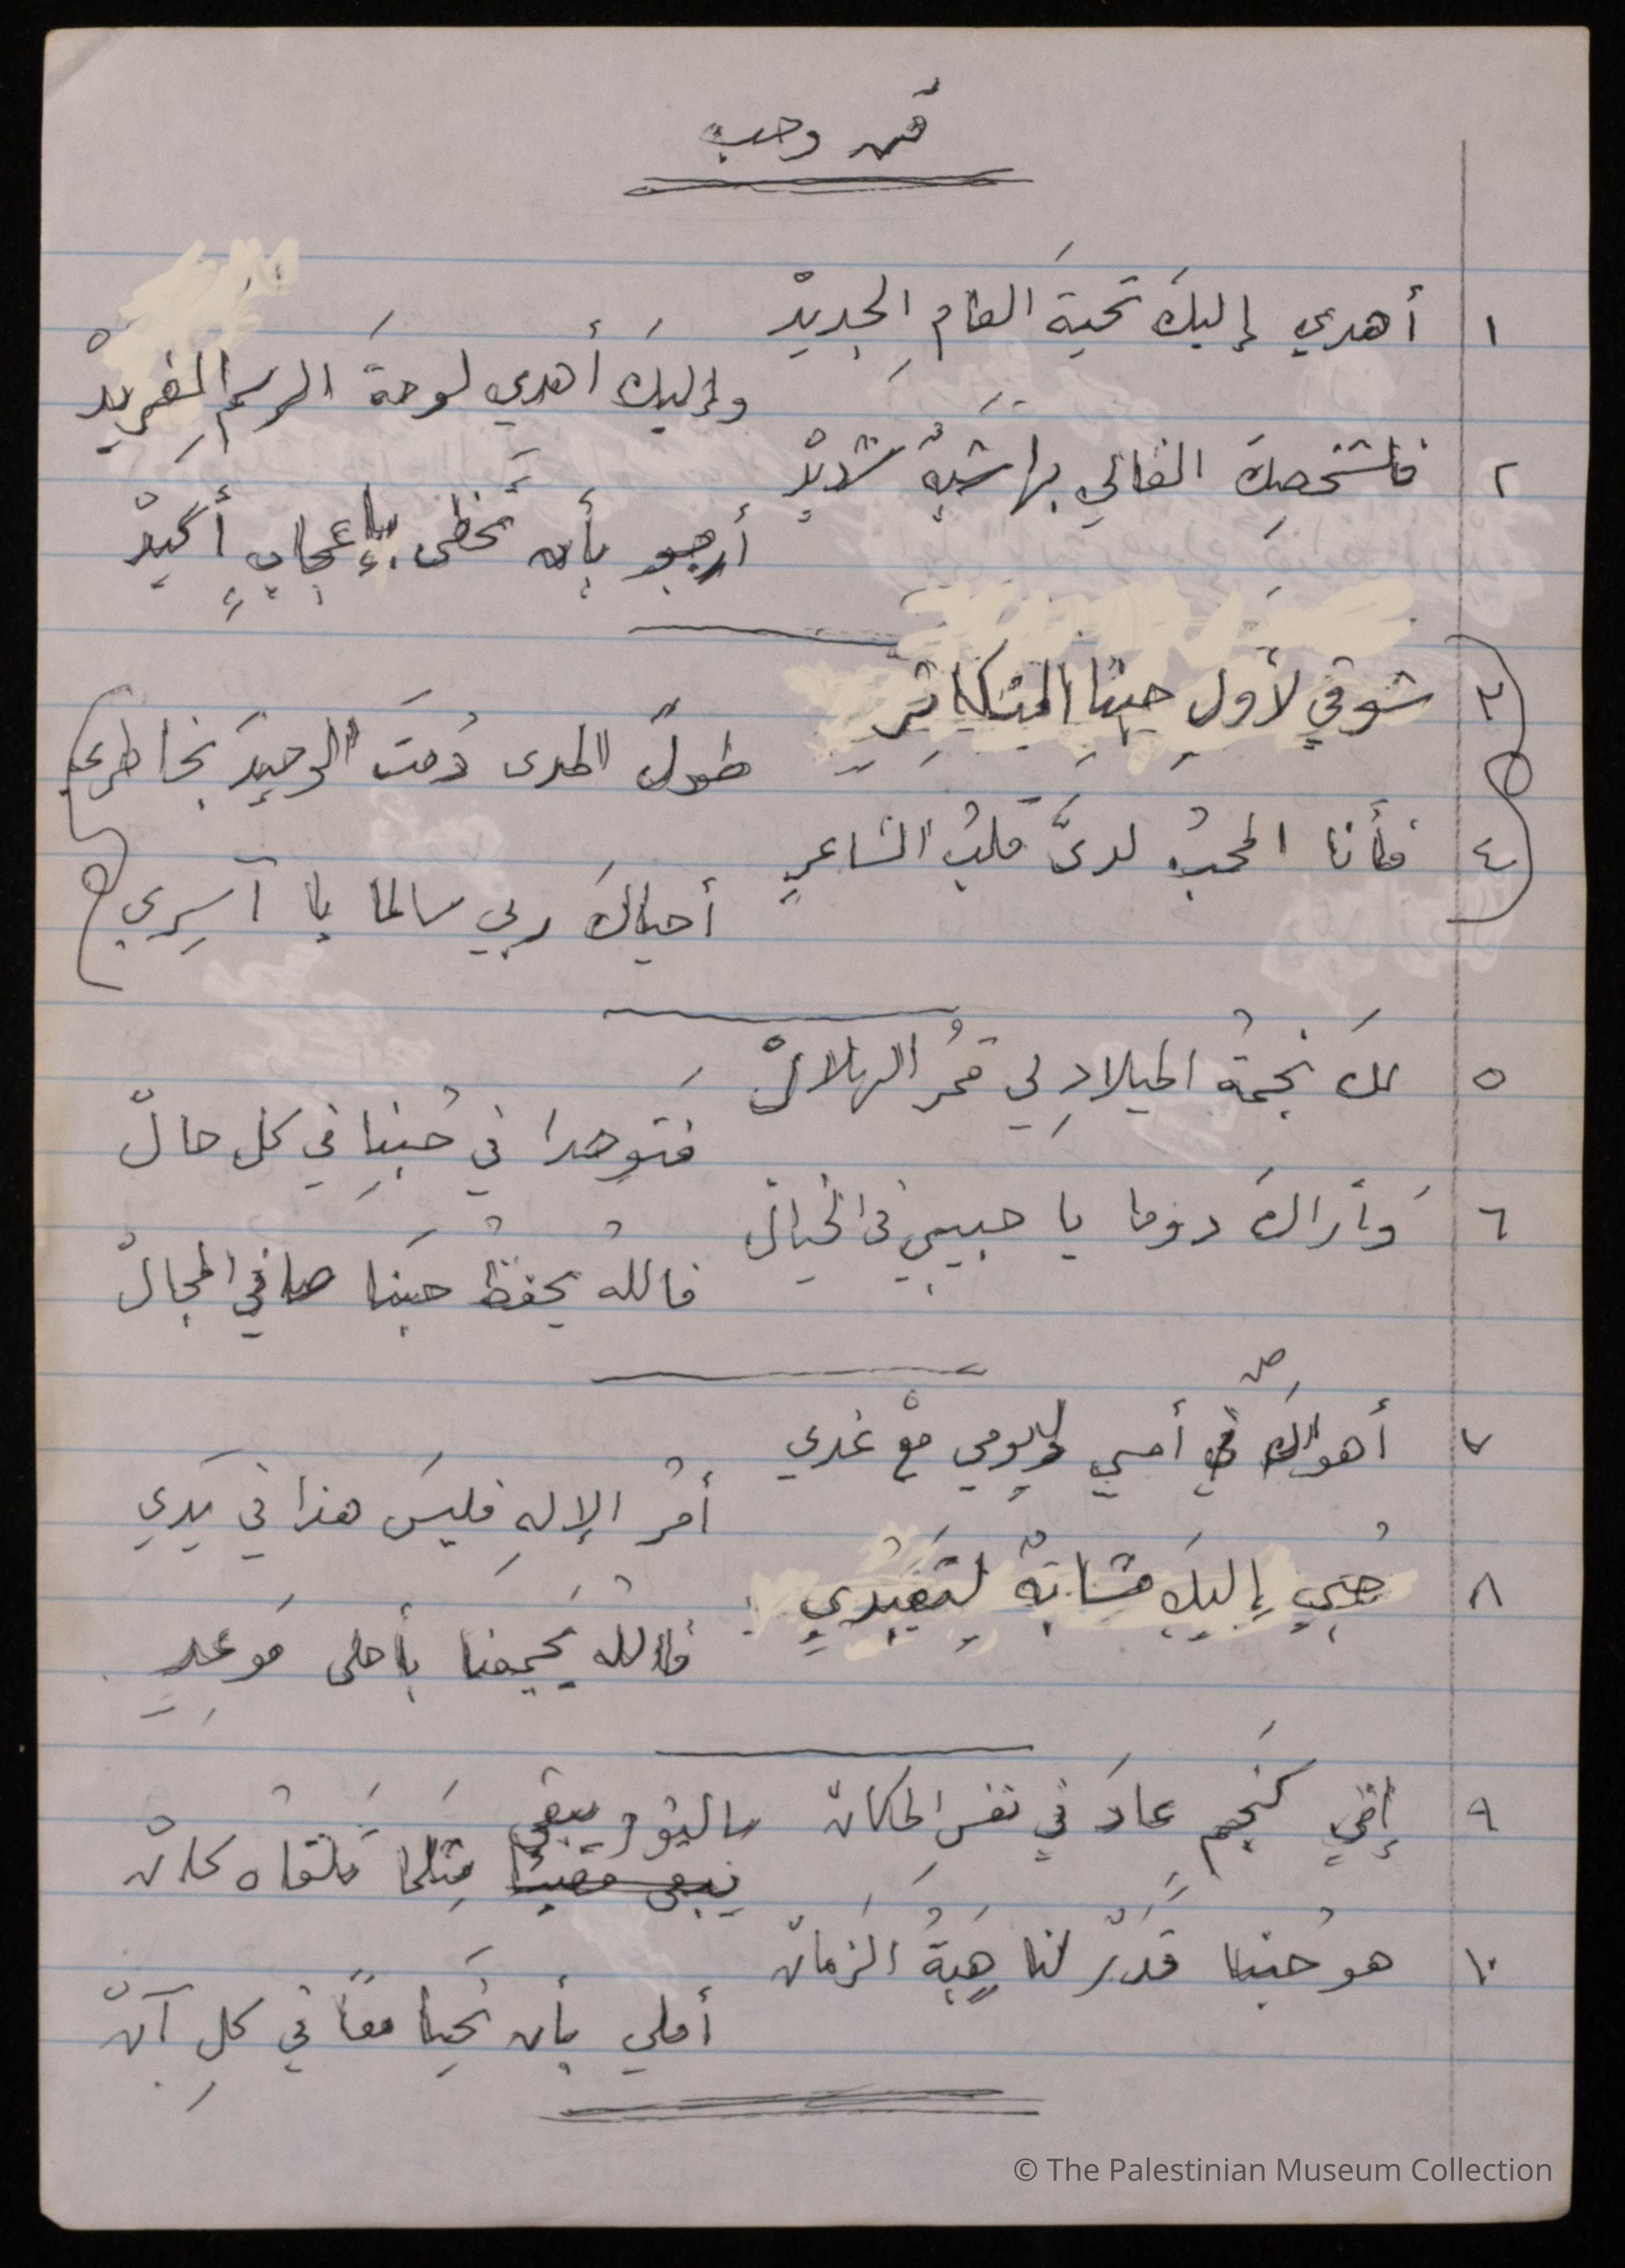 فن وحب
١ أهدي إليكَ تحيةَ العامِ الجديدْ
وإليكَ أهدي لوحةَ الرسمِ الفريدْ
٢ فلشخصِكَ الغالي بها شبهٌ شديدْ
أرجو بأن تحظى بإعجابٍ أكيدْ
٣ شوقي لأولِ حبِنا المتكاثرِ
طولَ المدى دُمتَ الوحيدَ بخاطري
٤ فأنا المحبُ لديَّ قلبُ الشاعرِ
أحياكَ ربي سالما يا آسِري
٥ لكَ نجمةُ الميلادِ لي قمرُ الهلالْ
فتوحدا في حُبنِا في كل حالْ
٦ وَأراكَ دوما يا حبيبي في الخيالْ
فاللهُ يحفظُ حبَنا صافي المجالْ
٧ أهواكَ من أمسي ليومي معْ غدي
أمرُ الإلهِ فليسَ هذا في يَدي
٨ حُبي إليكَ مشابهٌ لتعَبُدي
فاللهُ يَجمعُنا بأحلى مَوعدِ
٩ إني كنجمٍ عادَ في نفسِ المكانْ
بالنورِ يبقى
يبقى مضيئا مِثلما تَلقاه كانْ
١٠ هو حُبنا قَدَرٌ لنا هِبَةُ الزمانْ
أملي بأن نَحيا معاً في كلِ آنْ
© The Palestinian Museum Collection